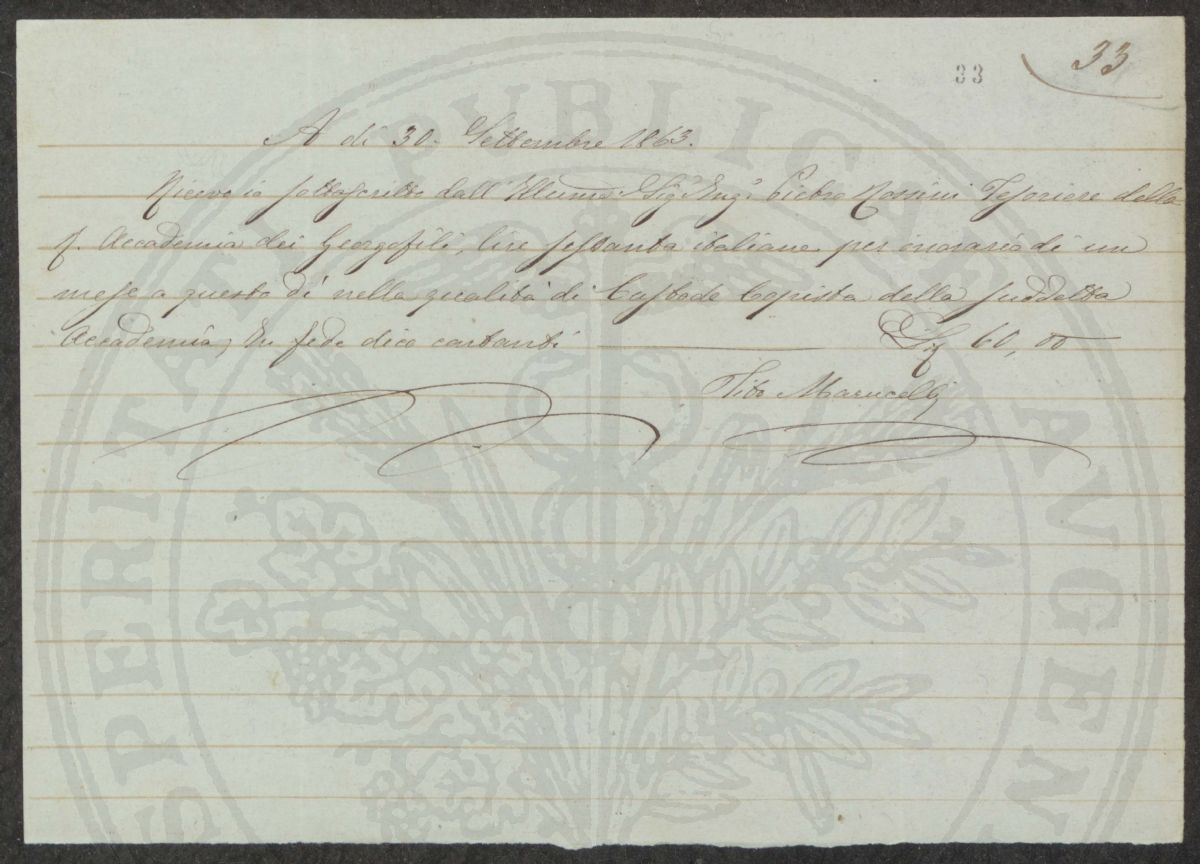 33
33
A dì 30. Settembre 1863.
Ricevo io sottoscritto dall'Illumo Sigr Ingr Pietro Tesoriere della
R. Accademia dei Georgofili, lire sessanta italiane per onorario di un
mese a questo dì nella qualità di Custode Copista della suddetta
Accademia, In fede dico contanti 60,00
Tito Marucelli
PROSPERITATI PUBLICAE AUGENDAE